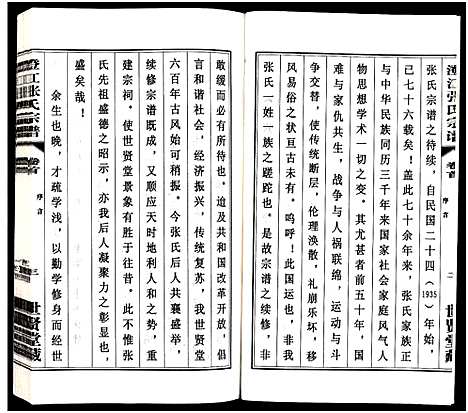 澄江张氏宗谱
卷首
序言
二
世贤堂藏
张氏宗谱之待续，自民国二十四（1935）年始，
已七十六载矣！盖此七十余年来，张氏家族正
与中华民族同历三千年来国家社会家庭风气人
物思想学术一切之变。其尤甚者前五十年，国
难与家仇共生，战争与人祸联绵，运动与斗
争交替，使传统断层，伦理涣散，礼崩乐坏，移
风易俗之状亘古未有。呜呼！此国运也，非我
张氏一姓一族之蹉跎也。是故宗谱之续修，非
敢缓而必有所待也。迨及共和国改革开放，倡
言和谐社会，经济振兴，传统复苏，我世贤堂
六百年古风始可稍振。今张氏后人共襄盛举，
续修宗谱既成，又顺应天时地利人和之势，重
建宗祠。使世贤堂景象有胜于往昔。此不惟张
氏先祖盛德之昭示，亦我后人凝聚力之彰显也，
盛矣哉！
余生也晚，才疏学浅，以勤学修身而经世
澄江张氏宗谱
卷首
序言
三
世贤堂藏